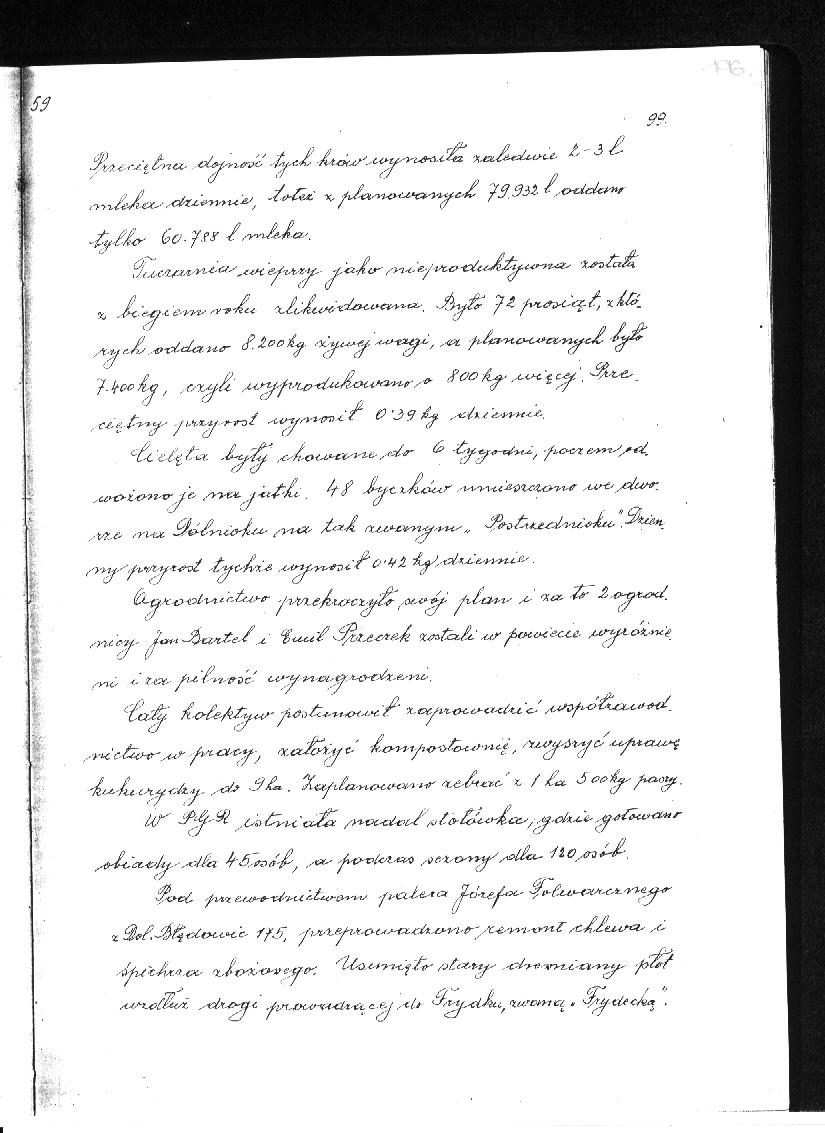 196.
59
99.
Przeciętna dojność tych krów wynosiła zaledwie 2-3 l
mleka dziennie, toteż z planowanych 79.932 l oddano
tylko 60.788 l mleka.
Tuczarnia wieprzy jako nieproduktywna została
z biegiem roku zlikwidowana. Było 72 prosiąt, z któ-
rych oddano 8.200 kg żywej wagi, a planowanych było
7.400 kg, czyli wyprodukowano o 800 kg więcej. Prze-
ciętny przyrost wynosił 0·39 kg dziennie.
Cielęta były chowane do 6 tygodni, poczem od-
wożono je na jatki. 48 byczków umieszczono we dwo-
rze na Pólnioku na tak zwanym „Postrzednioku". Dzien-
ny przyrost tychże wynosił 0·42 kg dziennie.
Ogrodnictwo przekroczyło swój plan i za to 2 ogrod-
nicy Jan Bartel i Emil Przeczek zostali w powiecie wyróżnie-
ni i za pilność wynagrodzeni.
Cały kolektyw postanowił zaprowadzić współzawod-
nictwo w pracy, założyć kompostownię, zwyszyć uprawę
kukurydzy do 9 ha. Zaplanowano zebrać z 1 ha 500 kg paszy.
W PGR istniała nadal stołówka, gdzie gotowano
obiady dla 45 osób, a podczas sezony dla 120 osób.
Pod przewodnictwem palera Józefa Folwarcznego
z Dol. Błędowic 175, przeprowadzono remont chlewa i
śpichrza zbożowego. Usunięto stary drewniany płot
wzdłuż drogi prowadzącej do Frydku, zwaną „Frydecką".